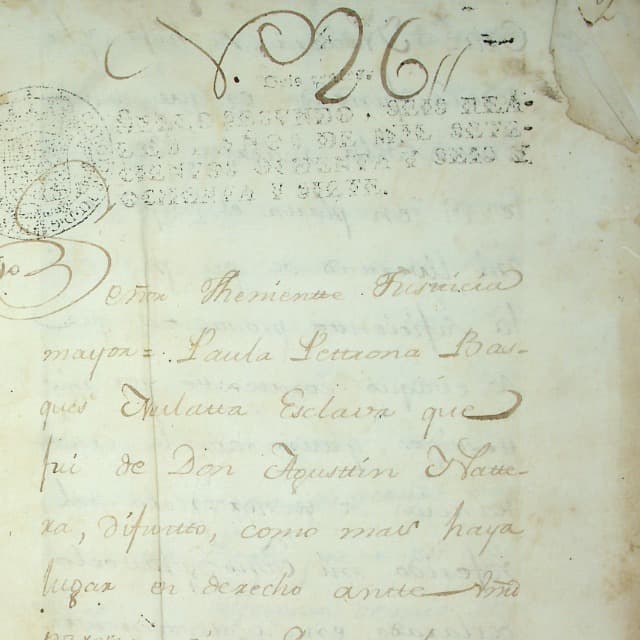 Nº 26//
SELLO SEGUNDO, SEIS REA-
AÑO DE MIL SETE-
CIENTOS CINQUENTA Y SEIS Y
CINQUENTA Y SIETE.
Señor Theniente Justicia
mayor=. Paula Pettrona Bas-
ques Mulatta Esclava que
fui de Don Agusttin Natte-
ra, difunto, como mas haya
lugar en derecho antte Vmd